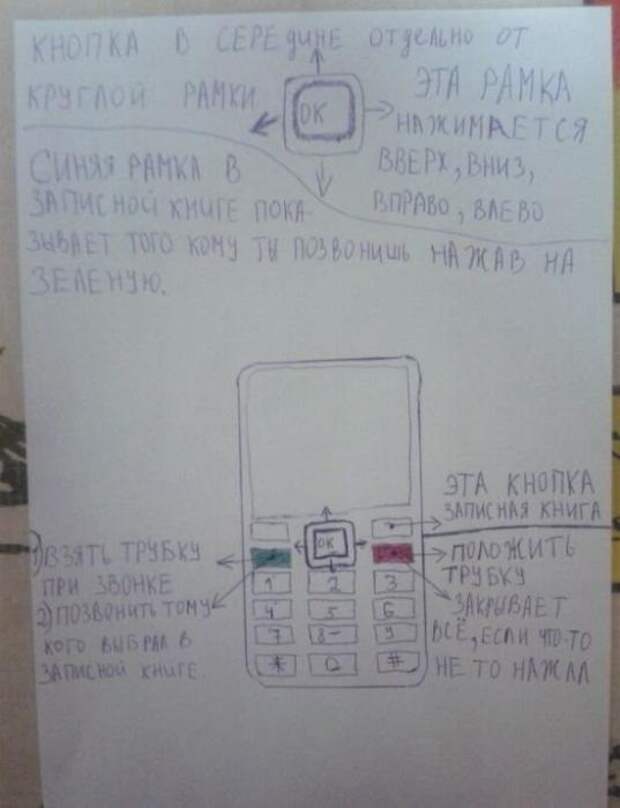 КНОПКА В СЕРЕДИНЕ ОТДЕЛЬНО ОТ
КРУГЛОЙ РАМКИ
OK
ЭТА РАМКА
НАЖИМАЕТСЯ
ВВЕРХ, ВНИЗ,
ВПРАВО, ВЛЕВО
СИНЯЯ РАМКА В
ЗАПИСНОЙ КНИГЕ ПОКА-
ЗЫВАЕТ ТОГО КОМУ ТЫ ПОЗВОНИШЬ НАЖАВ НА
ЗЕЛЕНУЮ.
ЭТА КНОПКА
ЗАПИСНАЯ КНИГА
OK
1) ВЗЯТЬ ТРУБКУ
ПРИ ЗВОНКЕ
2) ПОЗВОНИТЬ ТОМУ
КОГО ВЫБРАЛ В
ЗАПИСНОЙ КНИГЕ.
ПОЛОЖИТЬ
ТРУБКУ
ЗАКРЫВАЕТ
ВСЁ, ЕСЛИ ЧТО-ТО
НЕ ТО НАЖАЛ
1 2 3
4 5 6
7 8 9
* 0 #